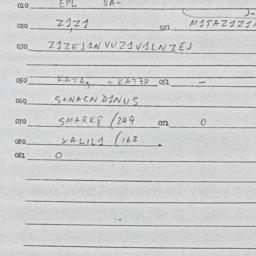 010 EPL DA-
020 Z1Z1 021 M1TAZ1Z1
030 Z1ZEJ1NVUZ1V1LNZEJ
050 KATA, = KAT3R 051 -
060 S+NACND1NUS
070 SMARK8 /249 071 0
080 XALIL1 (162 .
081 0